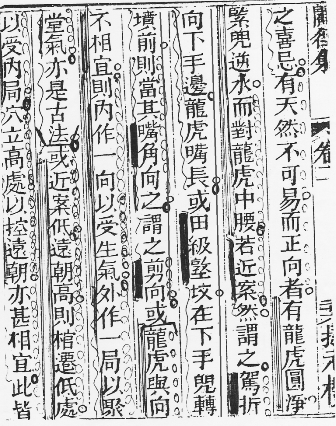 之喜忌有天然不可易而正向者有龍虎圓淨
緊兜逆水而對龍虎中腰若近案然謂之駕折
向下手邊龍虎嘴長或田級墪坟在下手兜轉
墳前則當其嘴角向之謂之剪向或龍虎與向
不相宜則內作一向以受生氣外作一局以聚
堂氣亦是古法或近案低遠朝高則棺遷低處
以受內局穴立高處以控遠朝亦甚相宜此皆